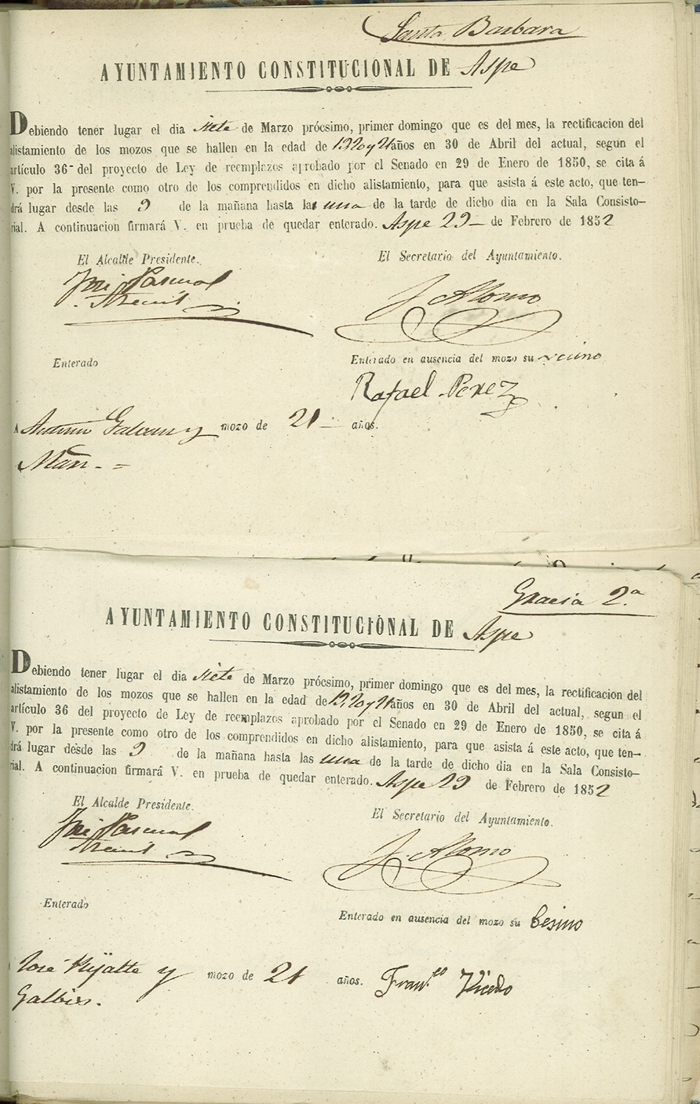 Santa Barbara
AYUNTAMIENTO CONSTITUCIONAL DE Aspe
Debiendo tener lugar el dia siete de Marzo prócsimo, primer domingo que es del mes, la rectificacion del
alistamiento de los mozos que se hallen en la edad de 19 20 y 21 años en 30 de Abril del actual, segun el
artículo 36 del proyecto de Ley de reemplazos aprobado por el Senado en 29 de Enero de 1850, se cita á
V. por la presente como otro de los comprendidos en dicho alistamiento, para que asista á este acto, que ten-
drá lugar desde las 9 de la mañana hasta las una de la tarde de dicho dia en la Sala Consisto-
rial. A continuacion firmará V. en prueba de quedar enterado. Aspe 29 de Febrero de 1852
El Alcalde Presidente. El Secretario del Ayuntamiento.
José Pascual J. Alonso
Enterado Enterado en ausencia del mozo su vecino
Rafael Perez
A Antonio y mozo de 21 años.
Gracia 2.a
AYUNTAMIENTO CONSTITUCIONAL DE Aspe
Debiendo tener lugar el dia siete de Marzo prócsimo, primer domingo que es del mes, la rectificacion del
alistamiento de los mozos que se hallen en la edad de 19 20 y 21 años en 30 de Abril del actual, segun el
artículo 36 del proyecto de Ley de reemplazos aprobado por el Senado en 29 de Enero de 1850, se cita á
V. por la presente como otro de los comprendidos en dicho alistamiento, para que asista á este acto, que ten-
drá lugar desde las 9 de la mañana hasta las una de la tarde de dicho dia en la Sala Consisto-
rial. A continuacion firmará V. en prueba de quedar enterado. Aspe 29 de Febrero de 1852
El Alcalde Presidente. El Secretario del Ayuntamiento.
José Pascual J. Alonso
Enterado Enterado en ausencia del mozo su besino
José y mozo de 21 años. Fran.co Vicedo